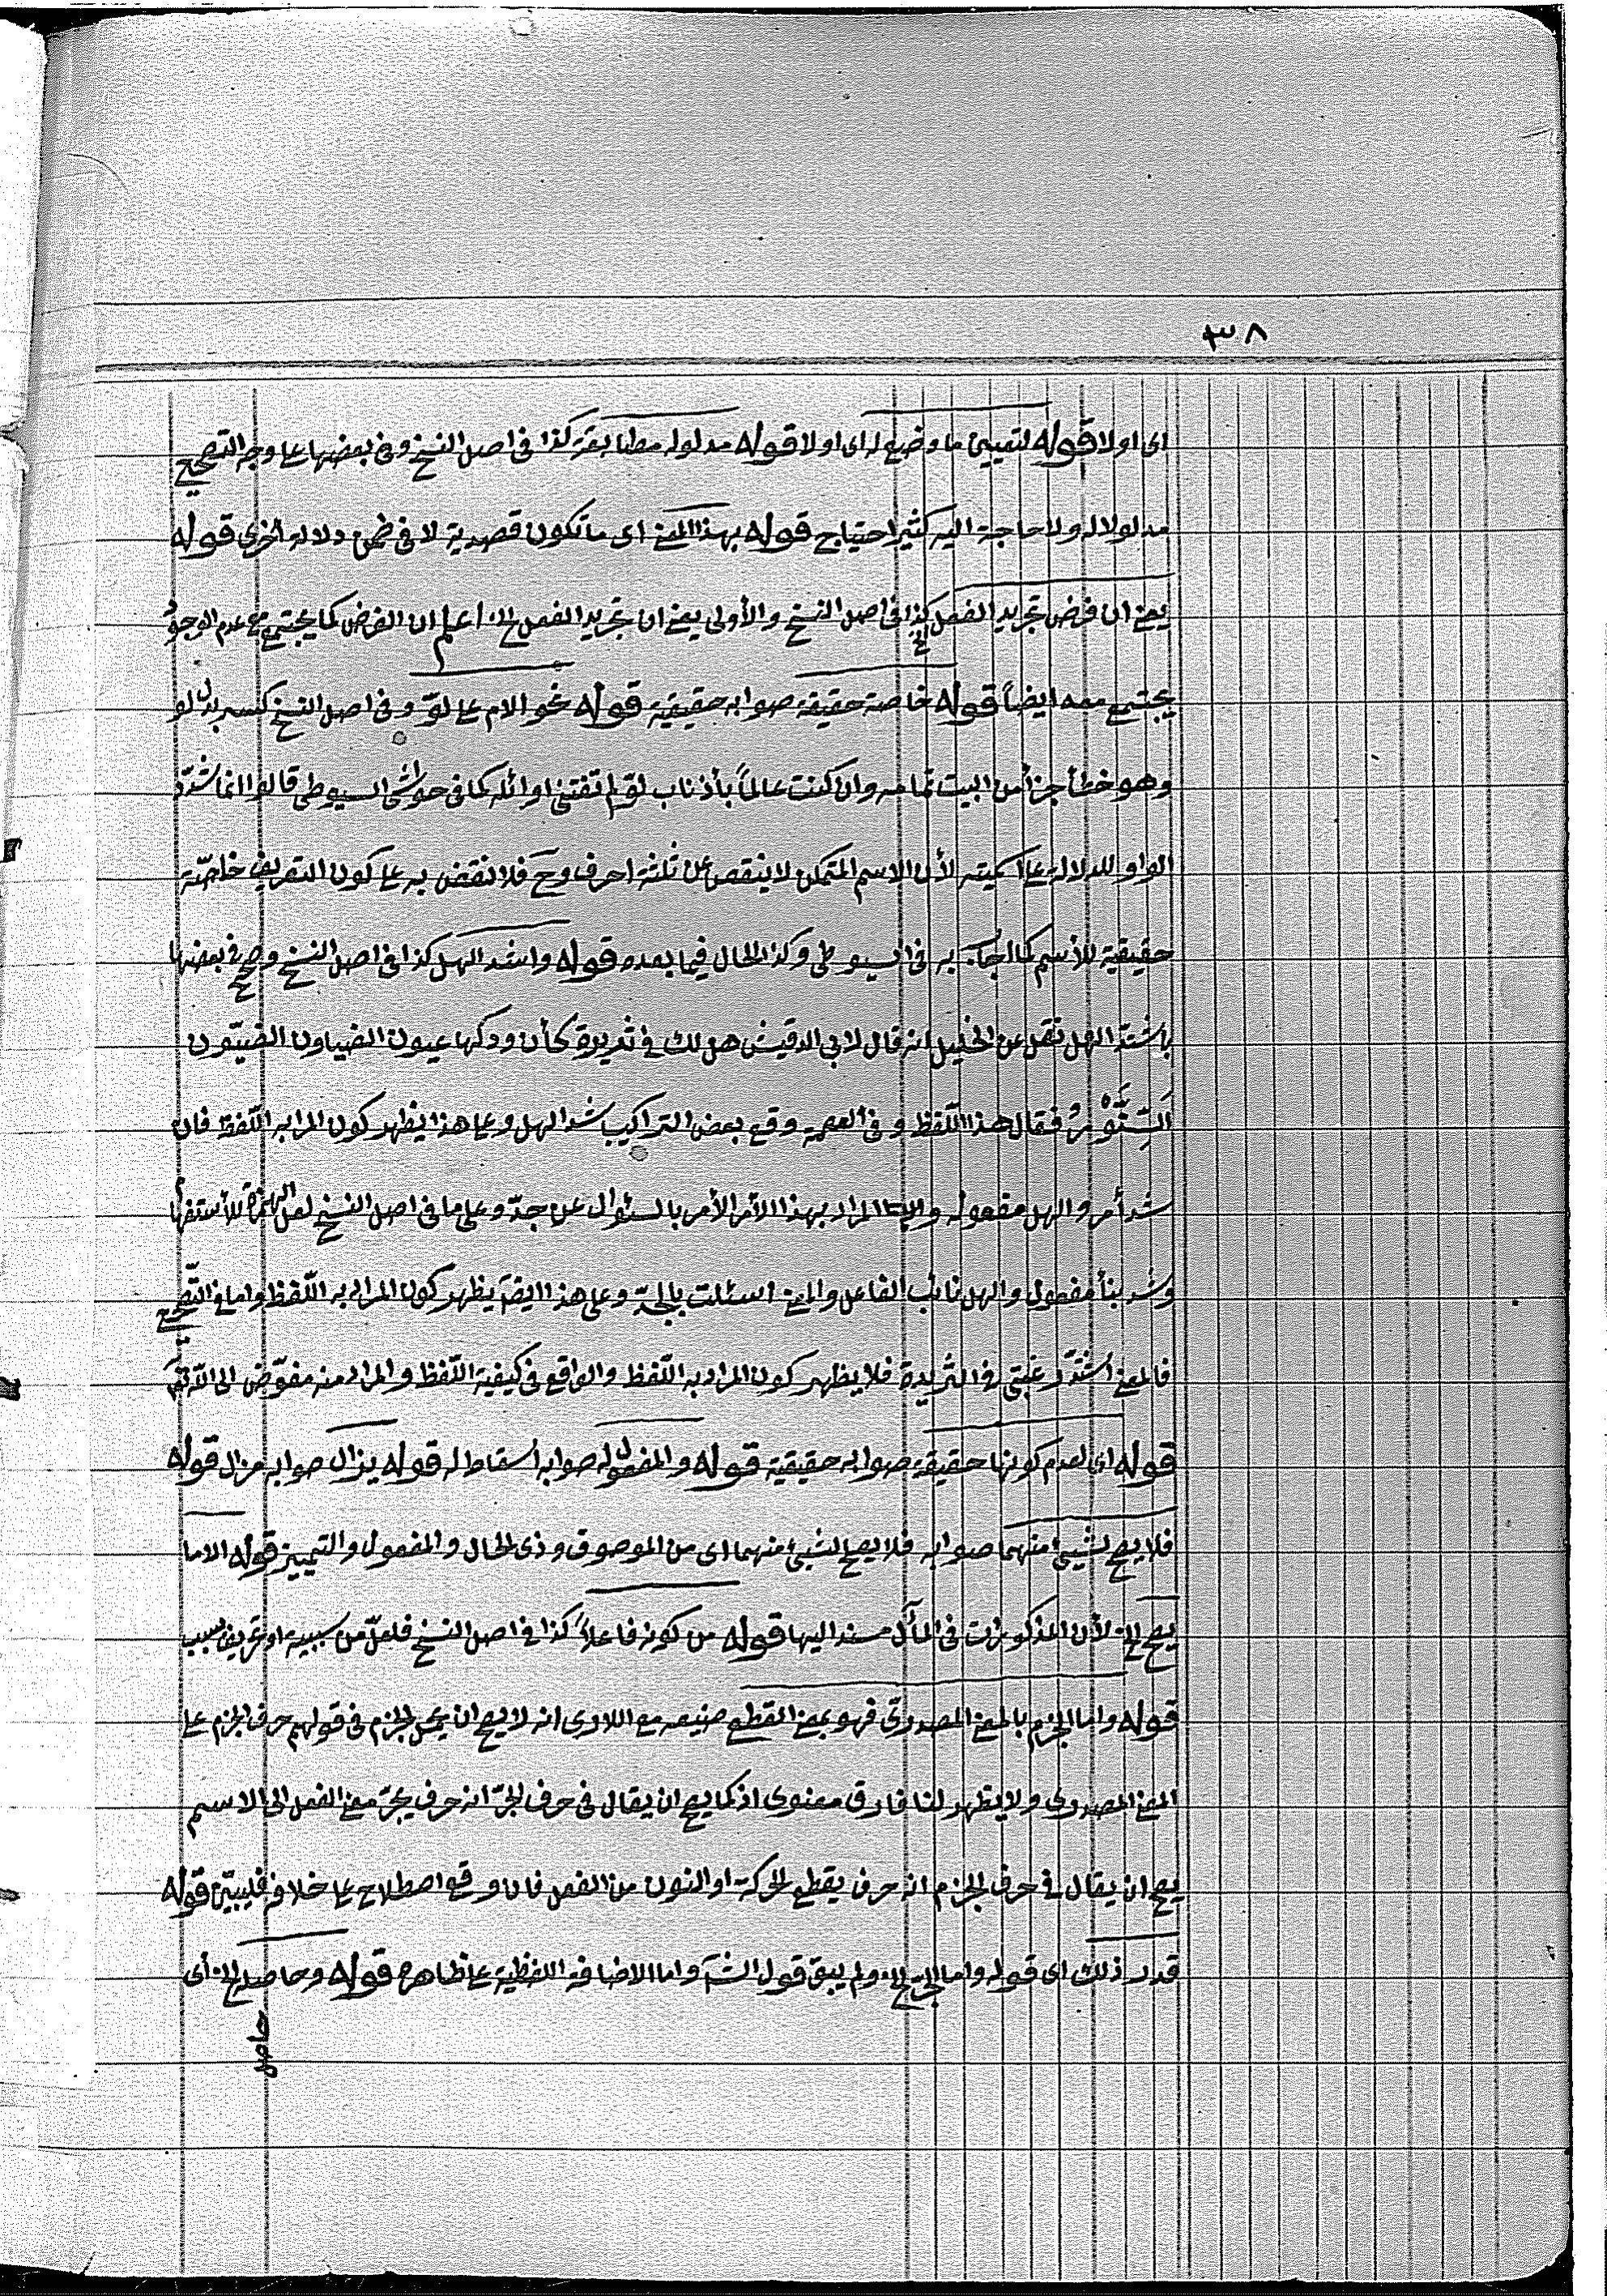 ٣٨
اى اولا قوله لتعيين ما وضع له اى اولا قوله مدلوله مطابقة كذا فى اصل النسخ وفى بعضها على وجه التصحيح
مدلولا له ولا حاجة اليه كثير احتياج قوله بهذا المعنى اى ما تكون قصدية لا فى ضمن دلالة اخرى قوله
يعنى ان فرض تجريد الفعل الخ كذا فى اصل النسخ والأولى يعنى ان تجريد الفعل الخ اعلم ان الفرض كما يجتمع مع عدم الوجود
يجتمع معه ايضاً قوله خاصة حقيقة صوابه حقيقية قوله نحو الام على لوّ وفى اصل النسخ كسر بدل لو
وهو خطأ جزأ من البيت تمامه وان كنت عالماً بأذناب لوّ لم تفتنى اوائله كما فى حواشى السيوطى قالوا انما شدّد
الواو للدلالة على اسميته لأن الاسم المتمكن لا ينقص عن ثلثة احرف وح فلا نقض به على كون التعريف خاصّة
حقيقية للأسم كما به فى السيوطى وكذا الحال فيما بعده قوله واشد الهل كذا فى اصل النسخ وصحح فى بعضها
باشدّ الهل نقل عن الخليل انه قال لابى الدقيش هل لك فى ثريدة كأن ودكها عيون الضياون الضيّون
السِّنَّوْرُ فقال هذا اللّفظ وفى وقع بعض التراكيب شد الهل وعلى هذا يظهر كون المراد به اللّفظ فان
شد أمر والهل مفعوله المراد بهذا الأمر الأمر بالسئوال عن جدّ وعلى ما فى اصل النسخ لعل الهمزة للأستفهام
وشد بنأ مفعول والهل نائب الفاعل والمعنى اسئلت بالجدّ وعلى هذا ايضاً يظهر كون المراد به اللّفظ واما فى التّصحيح
فالمعنى اشدّ رغبتى فى الثريدة فلا يظهر كون المراد به اللّفظ والواقع فى كيفية اللّفظ والمراد منه مفوّض الى
قوله اى لعدم كونها حقيقة صوابه حقيقية قوله والمفعول له صوابه اسقاط له قوله يزال صوابه مزال قوله
فلا يصح لشيئ منهما صوابه فلا يصح لشيئ منهما اى من الموصوف وذى الحال والمفعول والتمييز قوله الاما
يصح الخ لأن المذكورات فى المآل مسند اليها قوله من كونه فاعلاً كذا فى اصل النسخ فلعلّ من سببية او تحريف بسبب
قوله واما الجزم بالمعنى المصدرى فهو بمعنى القطع صنيعه مع اللارى انه لا يصح ان يحمل الجزم فى قولهم حرف الجزم على
المعنى المصدرى ولا يظهر لنا فارق معنوى اذ كما يصح ان يقال فى حرف الجرّ انه حرف يجرّ معنى الفعل الى الاسم
يصح ان يقال فى حرف الجزم انه حرف يقطع الحركة او النون من الفعل فان وقع اصطلاح على خلافه فليبيّن قوله
قدر ذلك اى قوله واما الجرّ الخ ولم يبق قول الشـ واما الاضافة اللفظية على ظاهره قوله وحاصله الخ أى
حاصل